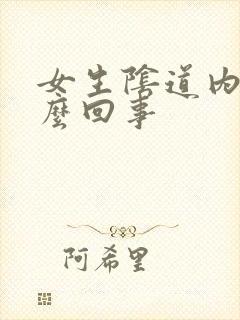 女生陰道内
麼回事
阿希里